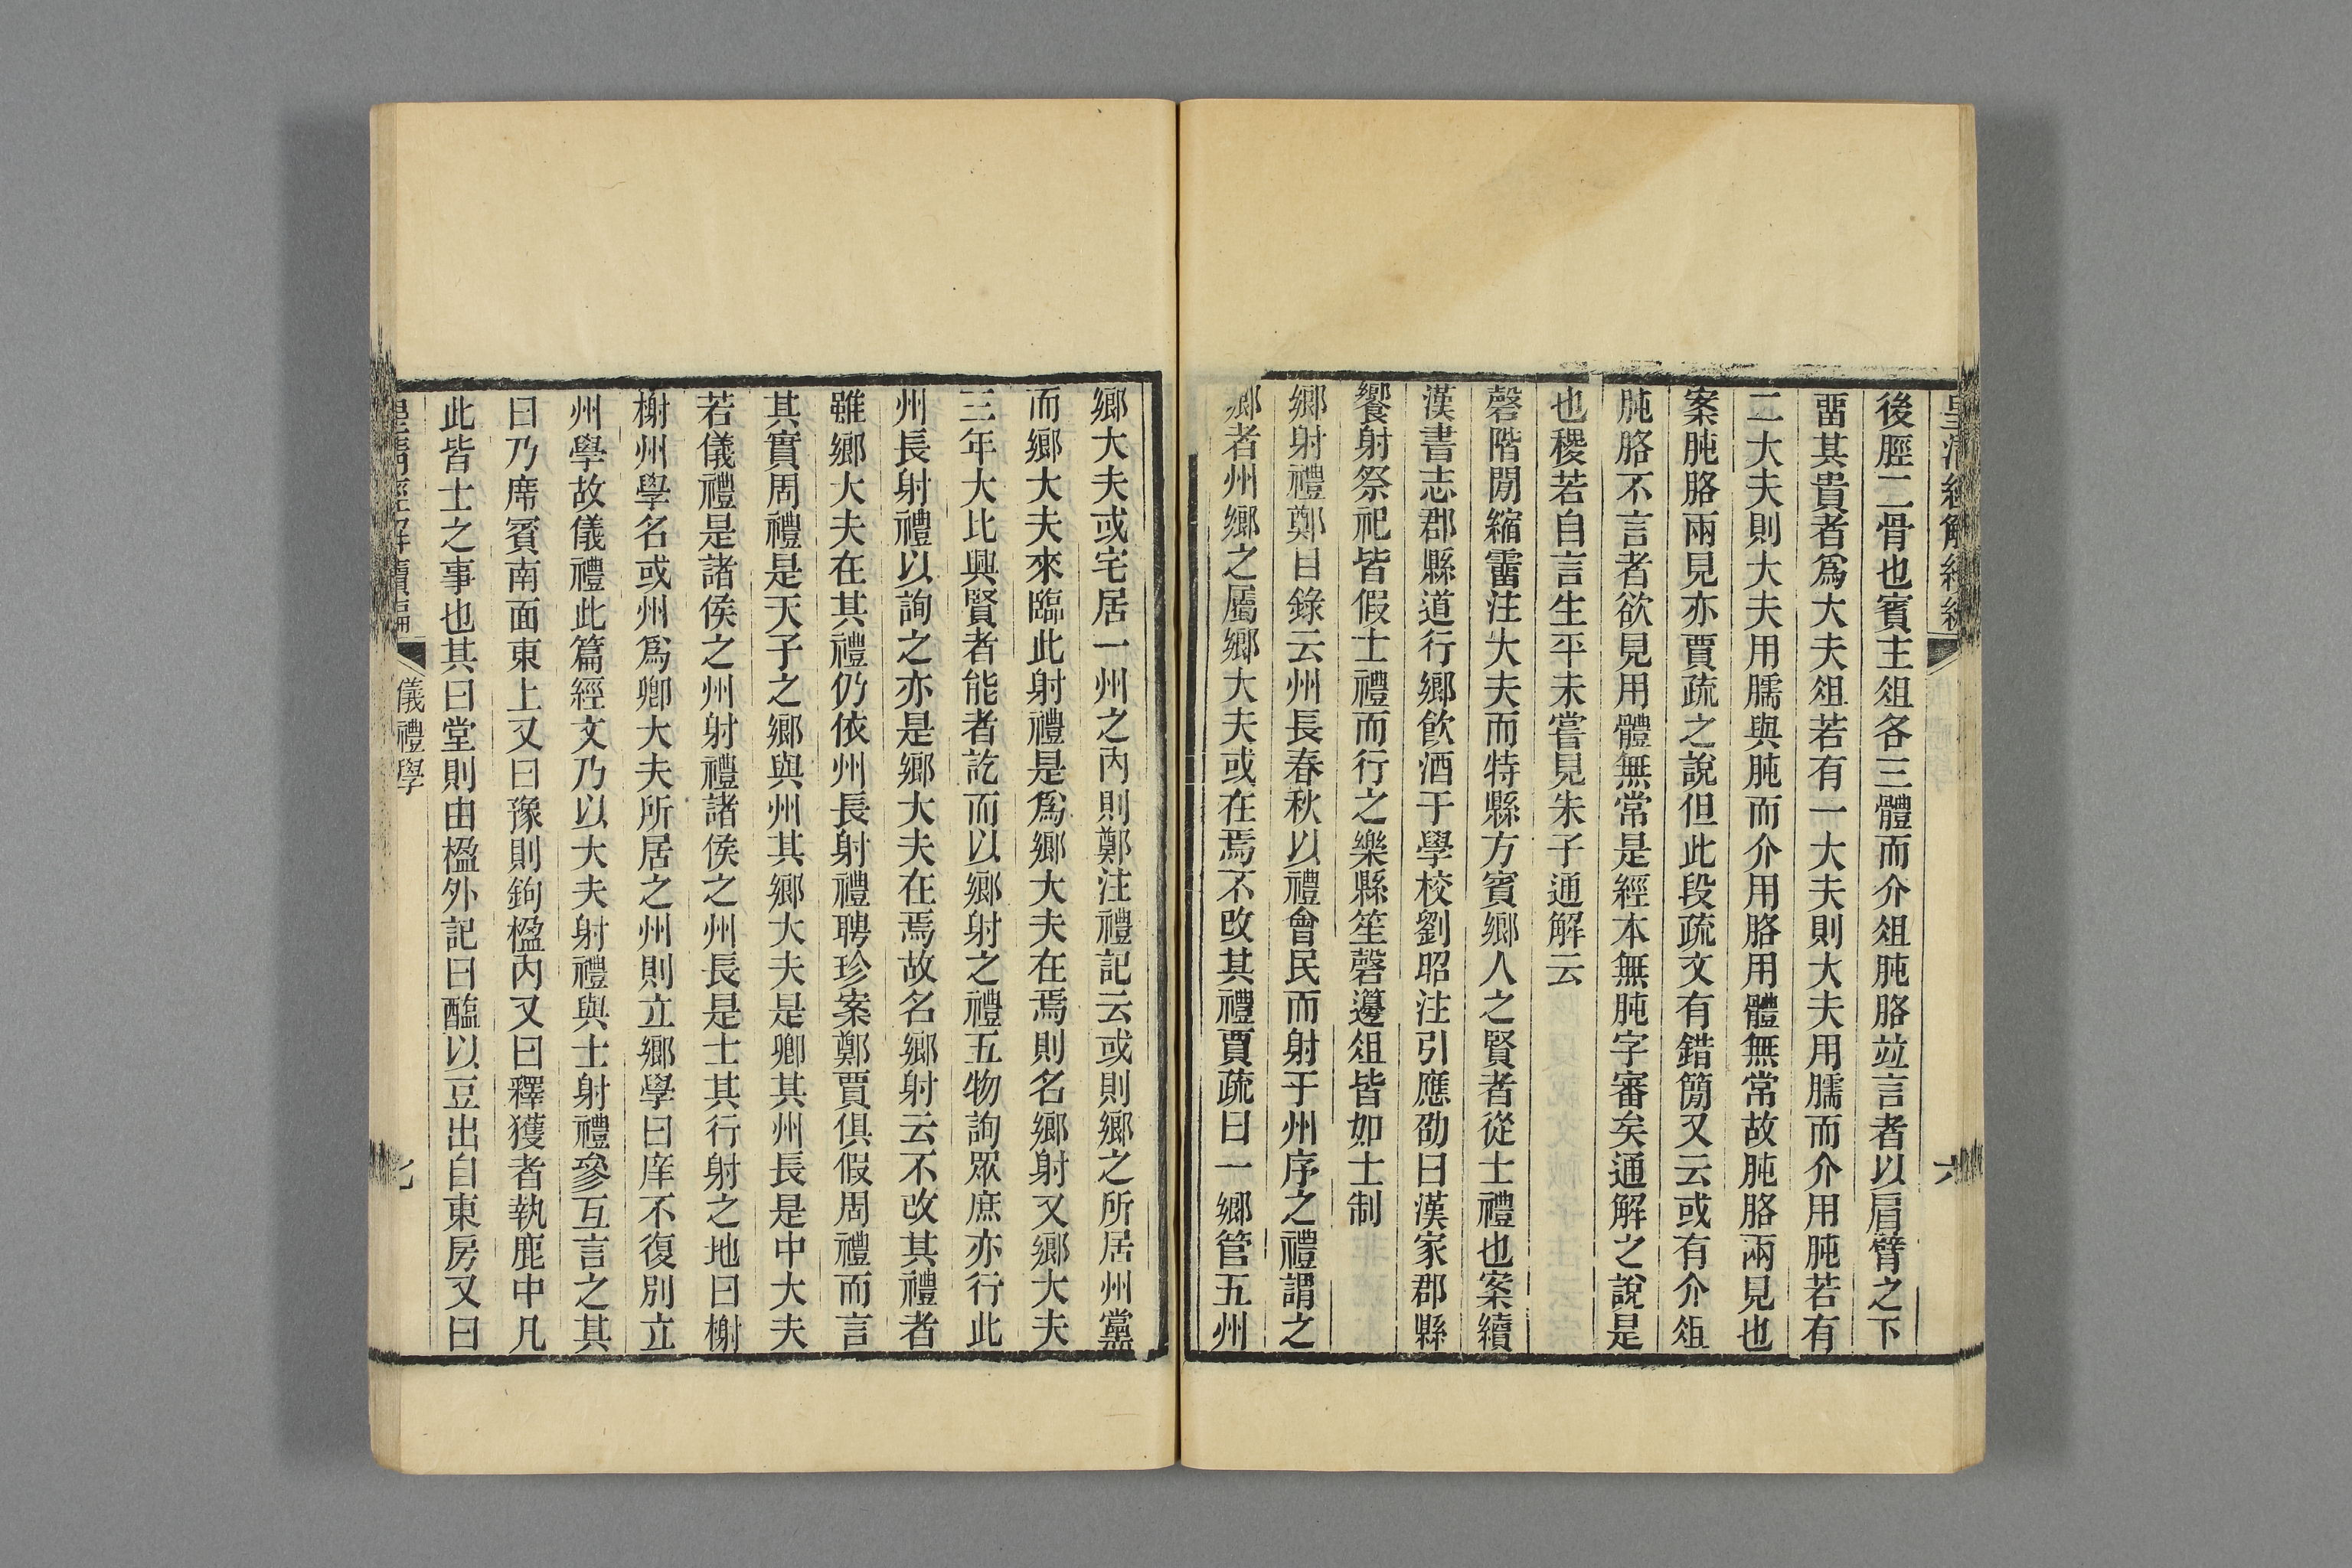 後脛二骨也賓主俎各三體而介俎肫胳竝言者以肩臂之下
畱其貴者爲大夫俎若有一大夫則大夫用臑而介用肫若有
二大夫則大夫用臑與肫而介用胳用體無常故肫胳兩見也
案肫胳兩見亦賈疏之說但此段疏文有錯簡又云或有介俎
肫胳不言者欲見用體無常是經本無肫字審矣通解之說是
也稷若自言生平未嘗見朱子通解云
磬階閒縮霤注大夫而特縣方賓鄉人之賢者從士禮也案續
漢書志郡縣道行鄉飮酒于學校劉昭注引應劭曰漢家郡縣
饗射祭祀皆假士禮而行之樂縣笙磬籩俎皆如士制
鄉射禮鄭目錄云州長春秋以禮會民而射于州序之禮謂之
鄉者州鄉之屬鄉大夫或在焉不改其禮賈疏曰一鄉管五州
鄉大夫或宅居一州之內則鄭注禮記云或則鄉之所居州黨
而鄉大夫來臨此射禮是爲鄉大夫在焉則名鄉射又鄉大夫
三年大比興賢者能者訖而以鄉射之禮五物詢眾庶亦行此
州長射禮以詢之亦是鄉大夫在焉故名鄉射云不改其禮者
雖鄉大夫在其禮仍依州長射禮聘珍案鄭賈俱假周禮而言
其實周禮是天子之鄉與州其鄉大夫是卿其州長是中大夫
若儀禮是諸侯之州射禮諸侯之州長是士其行射之地曰榭
榭州學名或州爲卿大夫所居之州則立鄉學曰庠不復別立
州學故儀禮此篇經文乃以大夫射禮與士射禮參互言之其
曰乃席賓南面東上又曰豫則鉤楹內又曰釋獲者執鹿中凡
此皆士之事也其曰堂則由楹外記曰醢以豆出自東房又曰
儀禮學